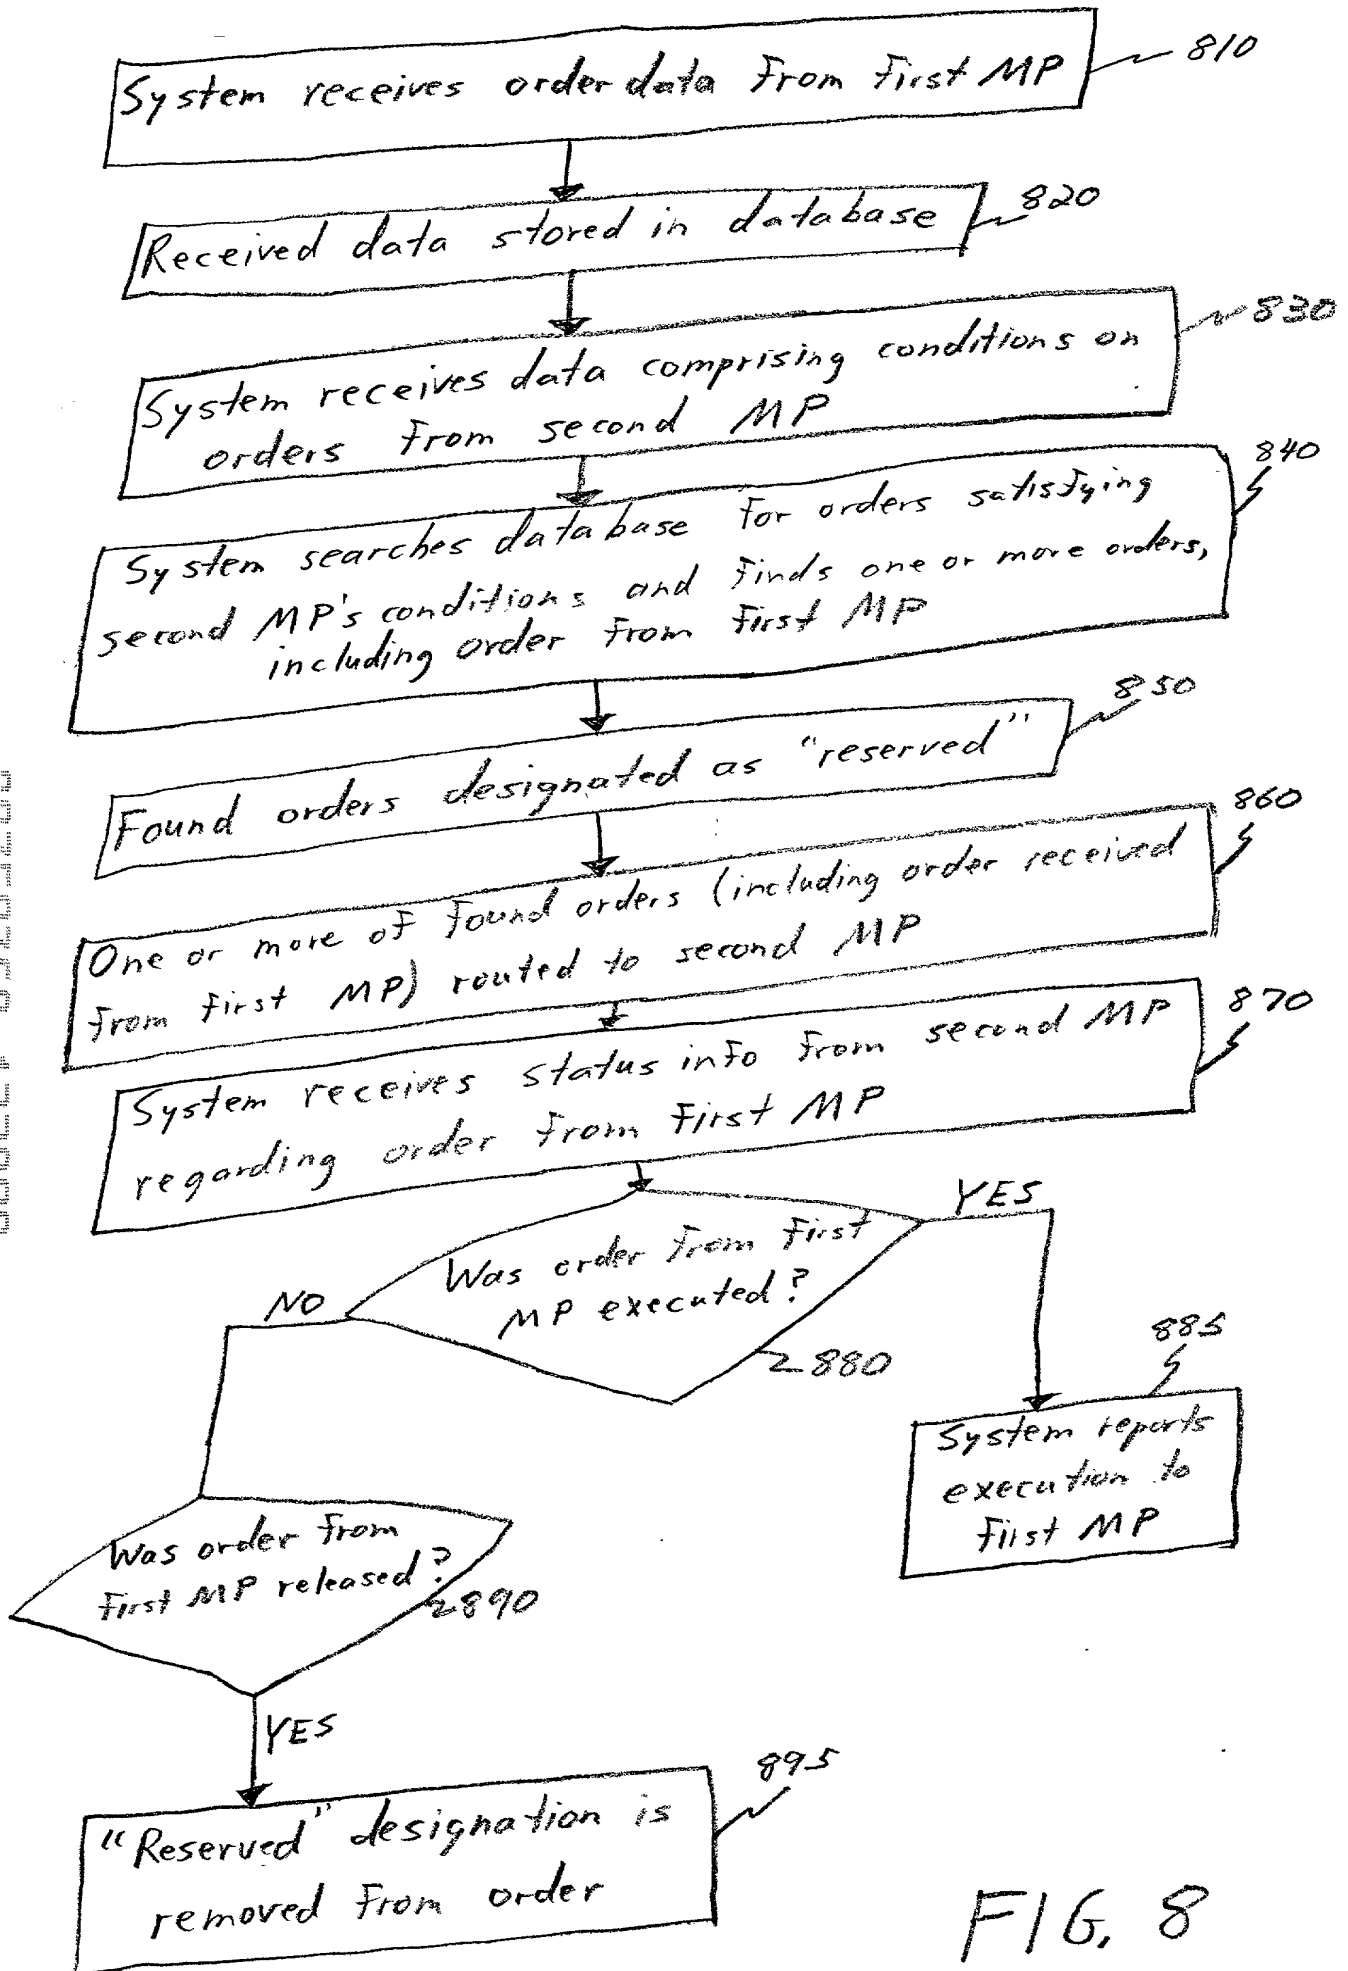 System receives order data from first MP
810
Received data stored in database
820
System receives data comprising conditions on
orders from second MP
830
System searches database for orders satisfying
second MP's conditions and finds one or more orders,
including order from first MP
840
Found orders designated as "reserved"
850
One or more of found orders (including order received
from first MP) routed to second MP
860
System receives status info from second MP
regarding order from first MP
870
Was order from first
MP executed?
880
YES
NO
885
System reports
execution to
first MP
Was order from
first MP released?
890
YES
"Reserved" designation is
removed from order
895
FIG. 8